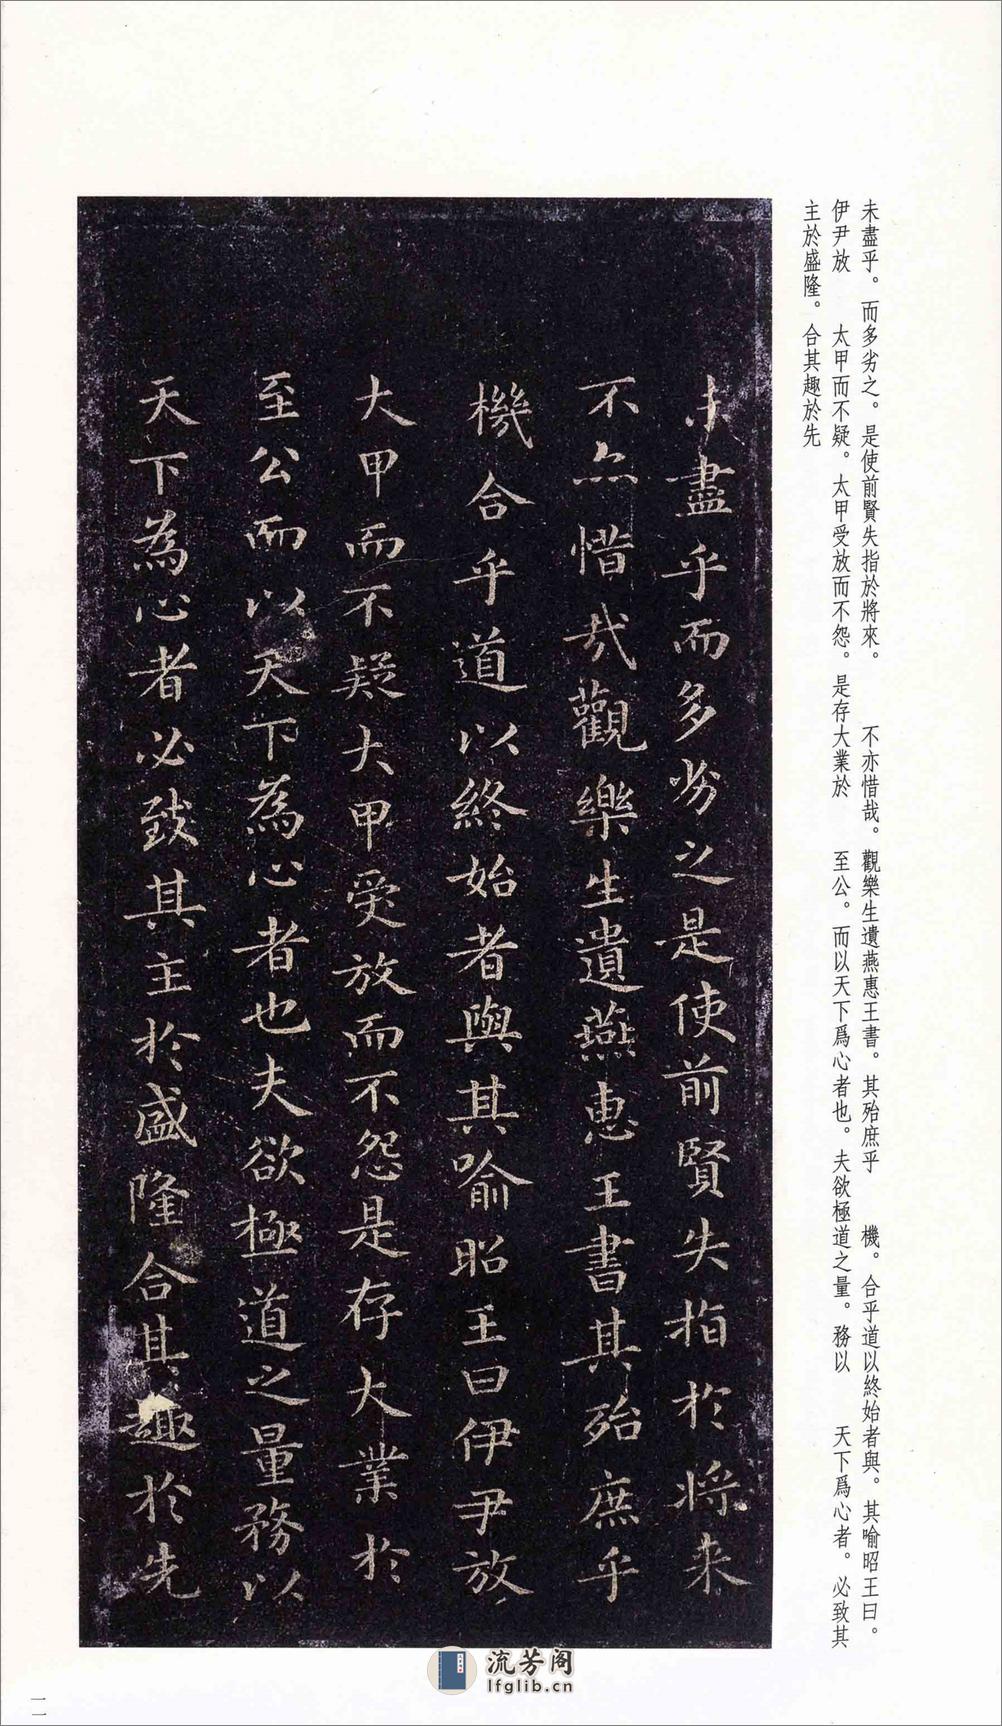 未盡乎。而多劣之。是使前賢失指於將來。　不亦惜哉。觀樂生遺燕惠王書。其殆庶乎　機。合乎道以終始者與。其喻昭王曰。
伊尹放　太甲而不疑。太甲受放而不怨。是存大業於　至公。而以天下爲心者也。夫欲極道之量。務以　天下爲心者。必致其
主於盛隆。合其趣於先
未盡乎而多劣之是使前賢失指於將来
不亦惜哉觀樂生遺燕惠王書其殆庶乎
機合乎道以終始者與其喻昭王曰伊尹放
大甲而不疑大甲受放而不怨是存大業於
至公而以天下為心者也夫欲極道之量務以
天下為心者必致其主於盛隆合其趣於先
流芳阁
lfglib.cn
一一